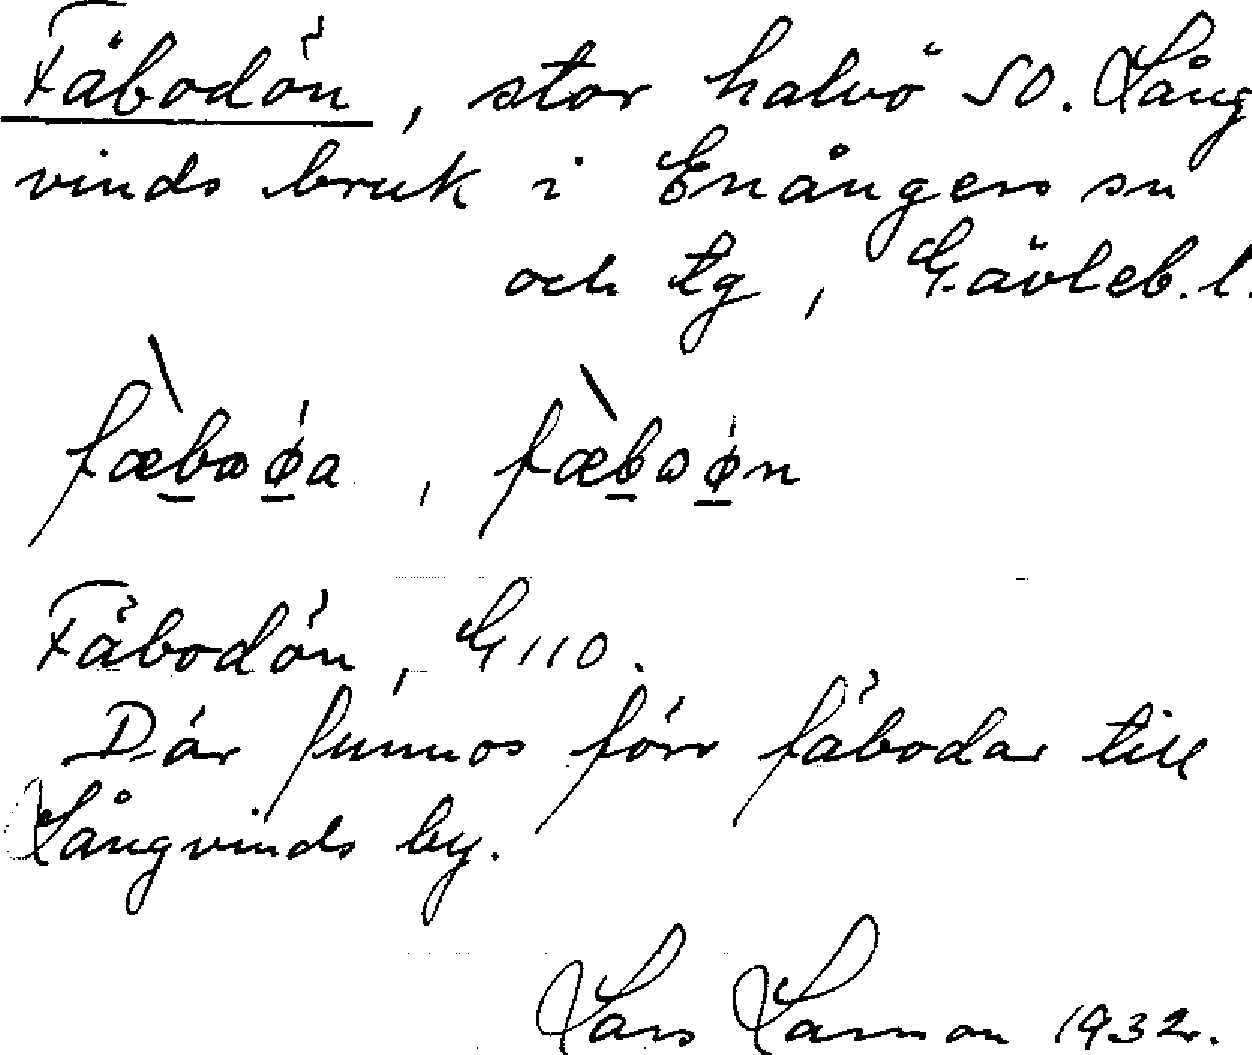 Fäbodön, stor halvö SO. Lång
vinds bruk i Enångers sn
och tg, Gävleb. l.
fæbɷøa, fæbɷøn
Fäbodön, G 110.
Där funnos förr fäbodar till
Långvinds by.
Lars Larsson 1932.